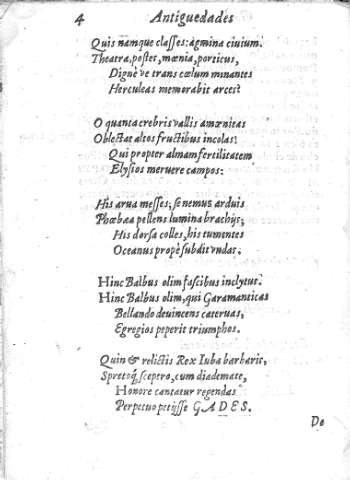 4 Antiguedades
Quis namque classes: agmina ciuium:
Theatra, postes, mœnia, porticus,
Digne ve trans cœlum minantes
Herculeas memorabit arces?
O quanta crebris vallis amœnitas
Oblectat altos fructibus incolas!
Qui propter almam fertilitatem
Elysios meruere campos:
His arua messes; se nemus arduis
Phœbæa pellens lumina brachijs;
His dorsa colles, his tumentes
Oceanus propè subdit vndas.
Hinc Balbus olim fascibus inclytus:
Hinc Balbus olim, qui Garamanticas
Bellando deuincens cateruas,
Egregios peperit triumphos.
Quin & relictis Rex Iuba barbaris,
Spretoq; sceptro, cum diademate,
Honore cantatur regendas
Perpetuo petijsse GADES.
De